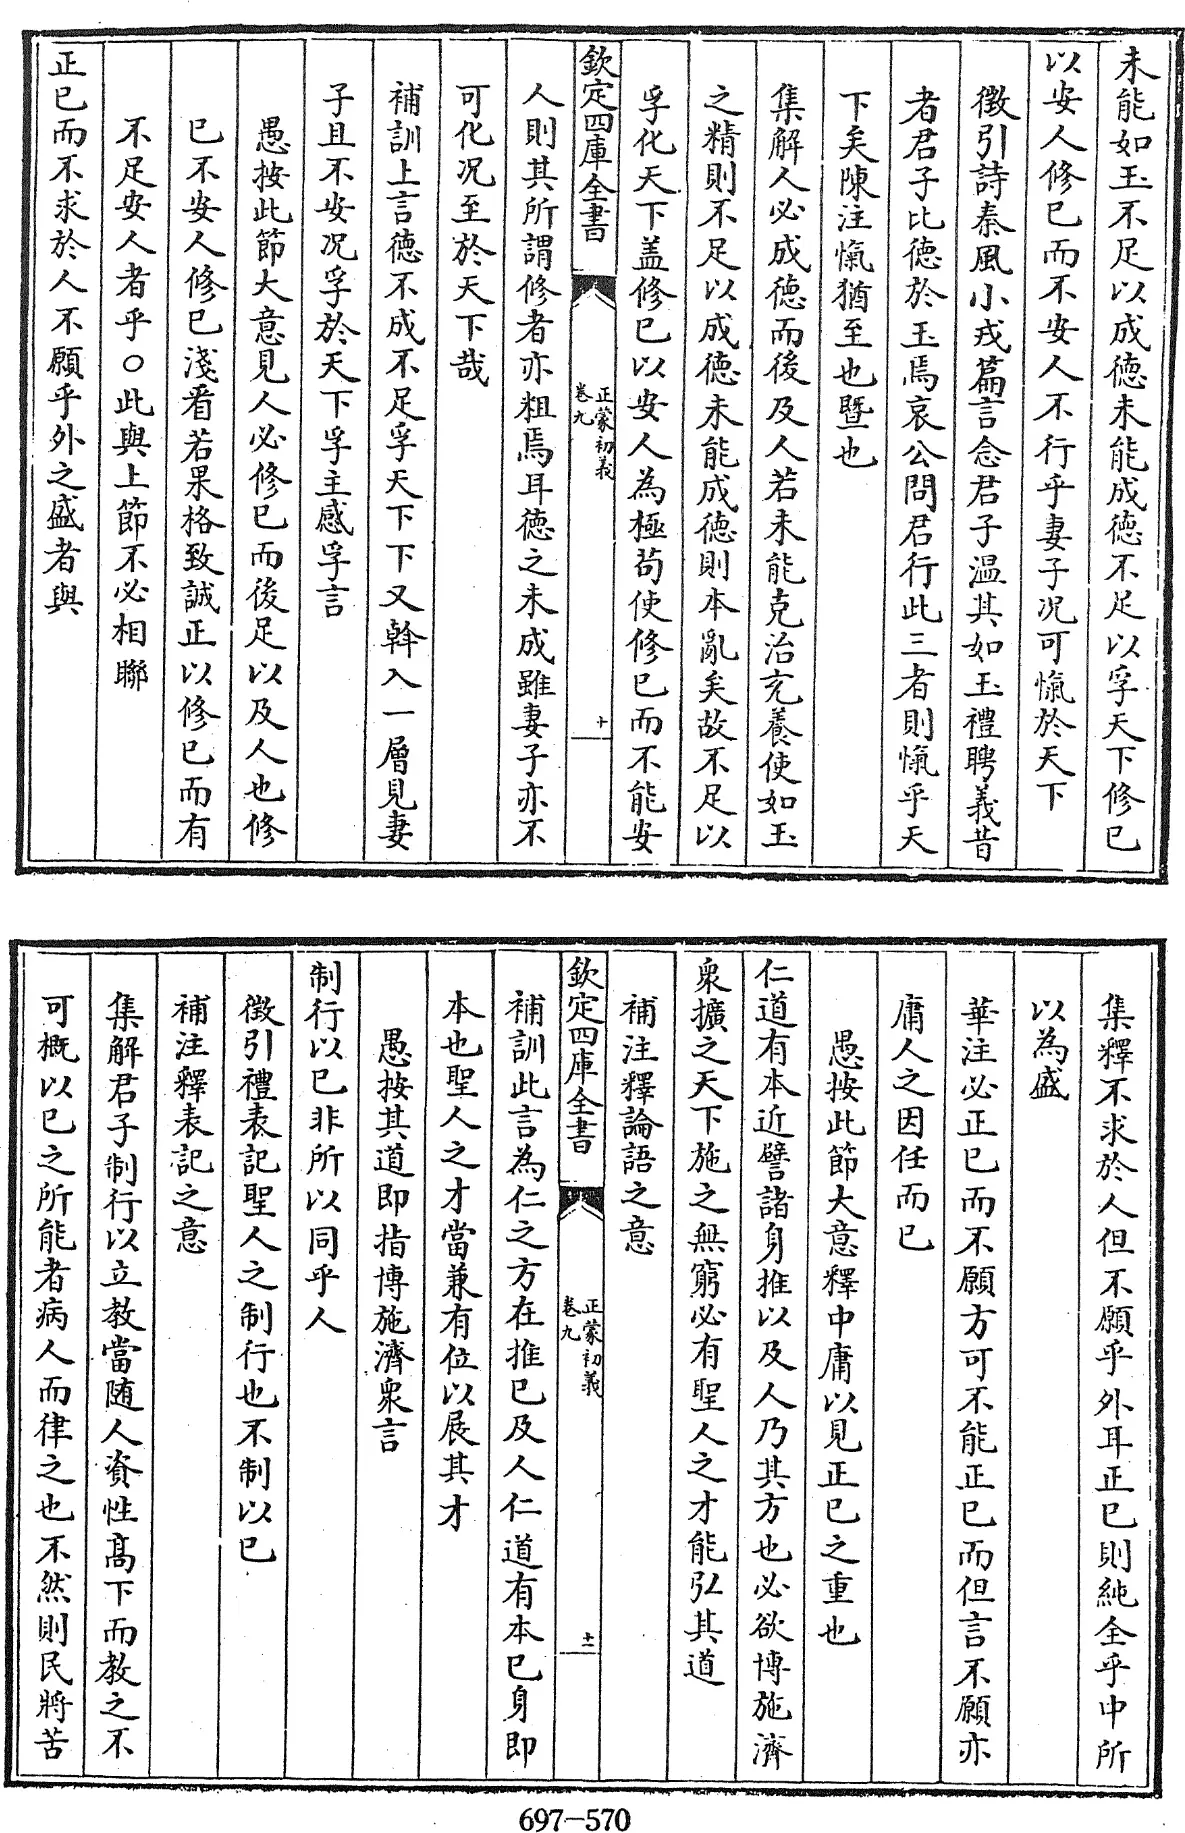 未能如玉不足以成德未能成德不足以孚天下修已
以安人修已而不安人不行乎妻子况可愾於天下
徵引詩秦風小戎篇言念君子温其如玉禮聘義昔
者君子比德於玉焉哀公問君行此三者則愾乎天
下矣陳注愾猶至也暨也
集解人必成德而後及人若未能克治充養使如玉
之精則不足以成德未能成德則本亂矣故不足以
孚化天下盖修已以安人為極苟使修已而不能安
欽定四庫全書
正蒙初義
卷九
十
人則其所謂修者亦粗焉耳德之未成雖妻子亦不
可化况至於天下哉
補訓上言德不成不足孚天下下又斡入一層見妻
子且不安况孚於天下孚主感孚言
愚按此節大意見人必修已而後足以及人也修
已不安人修已淺看若果格致誠正以修已而有
不足安人者乎○此與上節不必相聯
正已而不求於人不願乎外之盛者與
集釋不求於人但不願乎外耳正已則純全乎中所
以為盛
華注必正已而不願方可不能正已而但言不願亦
庸人之因任而已
愚按此節大意釋中庸以見正已之重也
仁道有本近譬諸身推以及人乃其方也必欲博施濟
衆擴之天下施之無窮必有聖人之才能弘其道
補注釋論語之意
欽定四庫全書
正蒙初義
卷九
十一
補訓此言為仁之方在推已及人仁道有本已身即
本也聖人之才當兼有位以展其才
愚按其道即指博施濟衆言
制行以已非所以同乎人
徵引禮表記聖人之制行也不制以已
補注釋表記之意
集解君子制行以立教當随人資性髙下而教之不
可概以已之所能者病人而律之也不然則民將苦
697-570